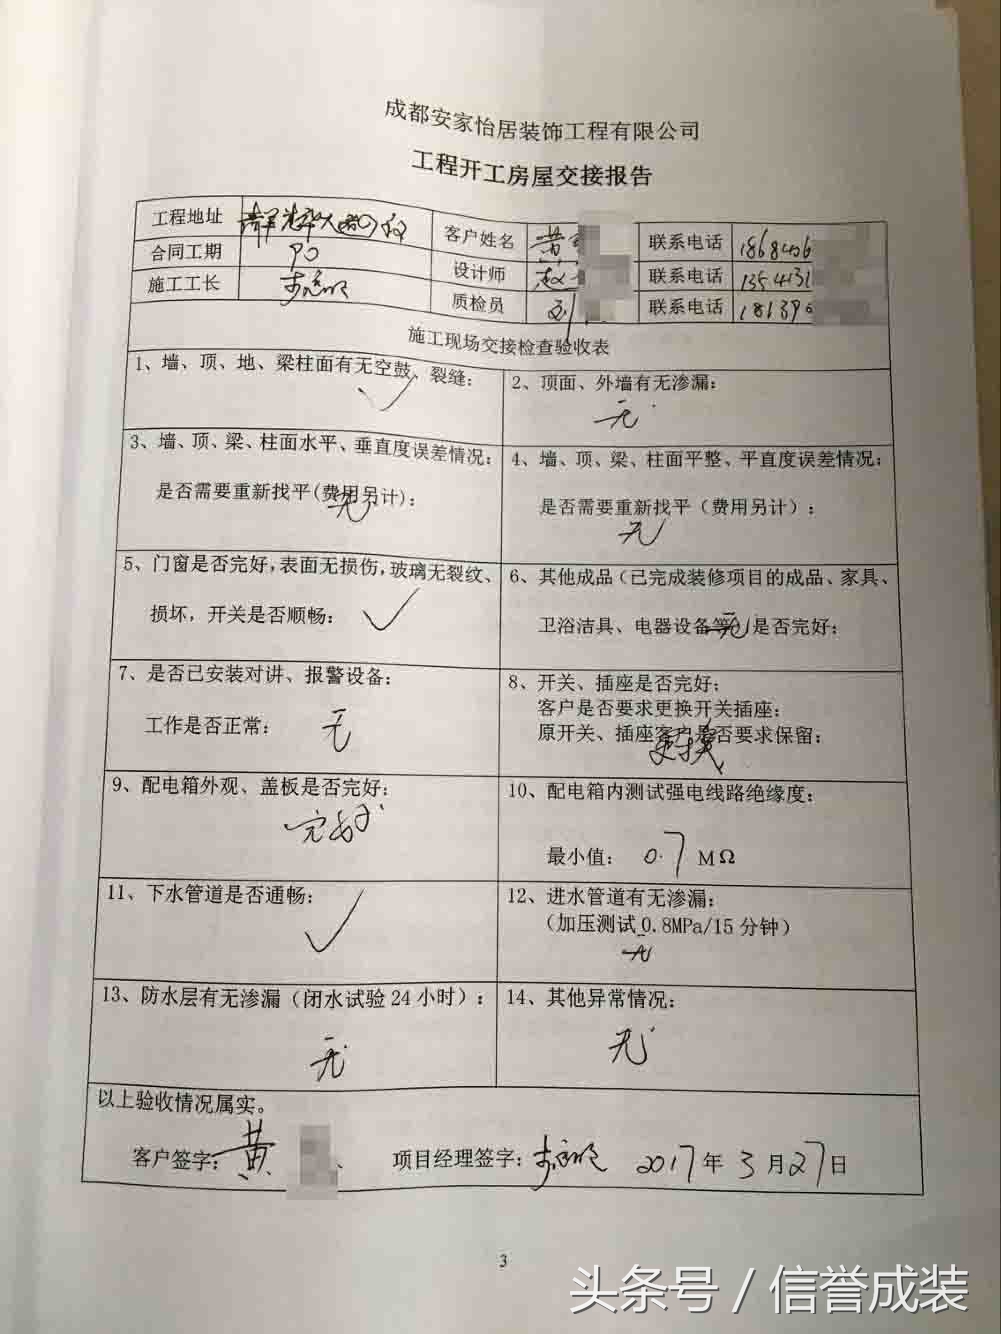 成都安家怡居装饰工程有限公司
工程开工房屋交接报告
工程地址
客户姓名 黄 联系电话 1868406
合同工期 90
设计师 赵 联系电话 1354131
施工工长
质检员 刘 联系电话 181390
施工现场交接检查验收表
1、墙、顶、地、梁柱面有无空鼓、裂缝：
✓
2、顶面、外墙有无渗漏：
无
3、墙、顶、梁、柱面水平、垂直度误差情况：
是否需要重新找平(费用另计)：
无
4、墙、顶、梁、柱面平整、平直度误差情况：
是否需要重新找平（费用另计）：
无
5、门窗是否完好，表面无损伤，玻璃无裂纹、
损坏，开关是否顺畅： ✓
6、其他成品（已完成装修项目的成品、家具、
卫浴洁具、电器设备等）是否完好：
无
7、是否已安装对讲、报警设备：
工作是否正常： 无
8、开关、插座是否完好；
客户是否要求更换开关插座；
原开关、插座客户是否要求保留：
更换
9、配电箱外观、盖板是否完好：
完好
10、配电箱内测试强电线路绝缘度：
最小值： 0.7 MΩ
11、下水管道是否通畅：
✓
12、进水管道有无渗漏：
（加压测试 0.8MPa/15 分钟）
无
13、防水层有无渗漏（闭水试验 24 小时）：
无
14、其他异常情况：
无
以上验收情况属实。
客户签字：黄 项目经理签字： 2017年3月27日
3
头条号 / 信誉成装